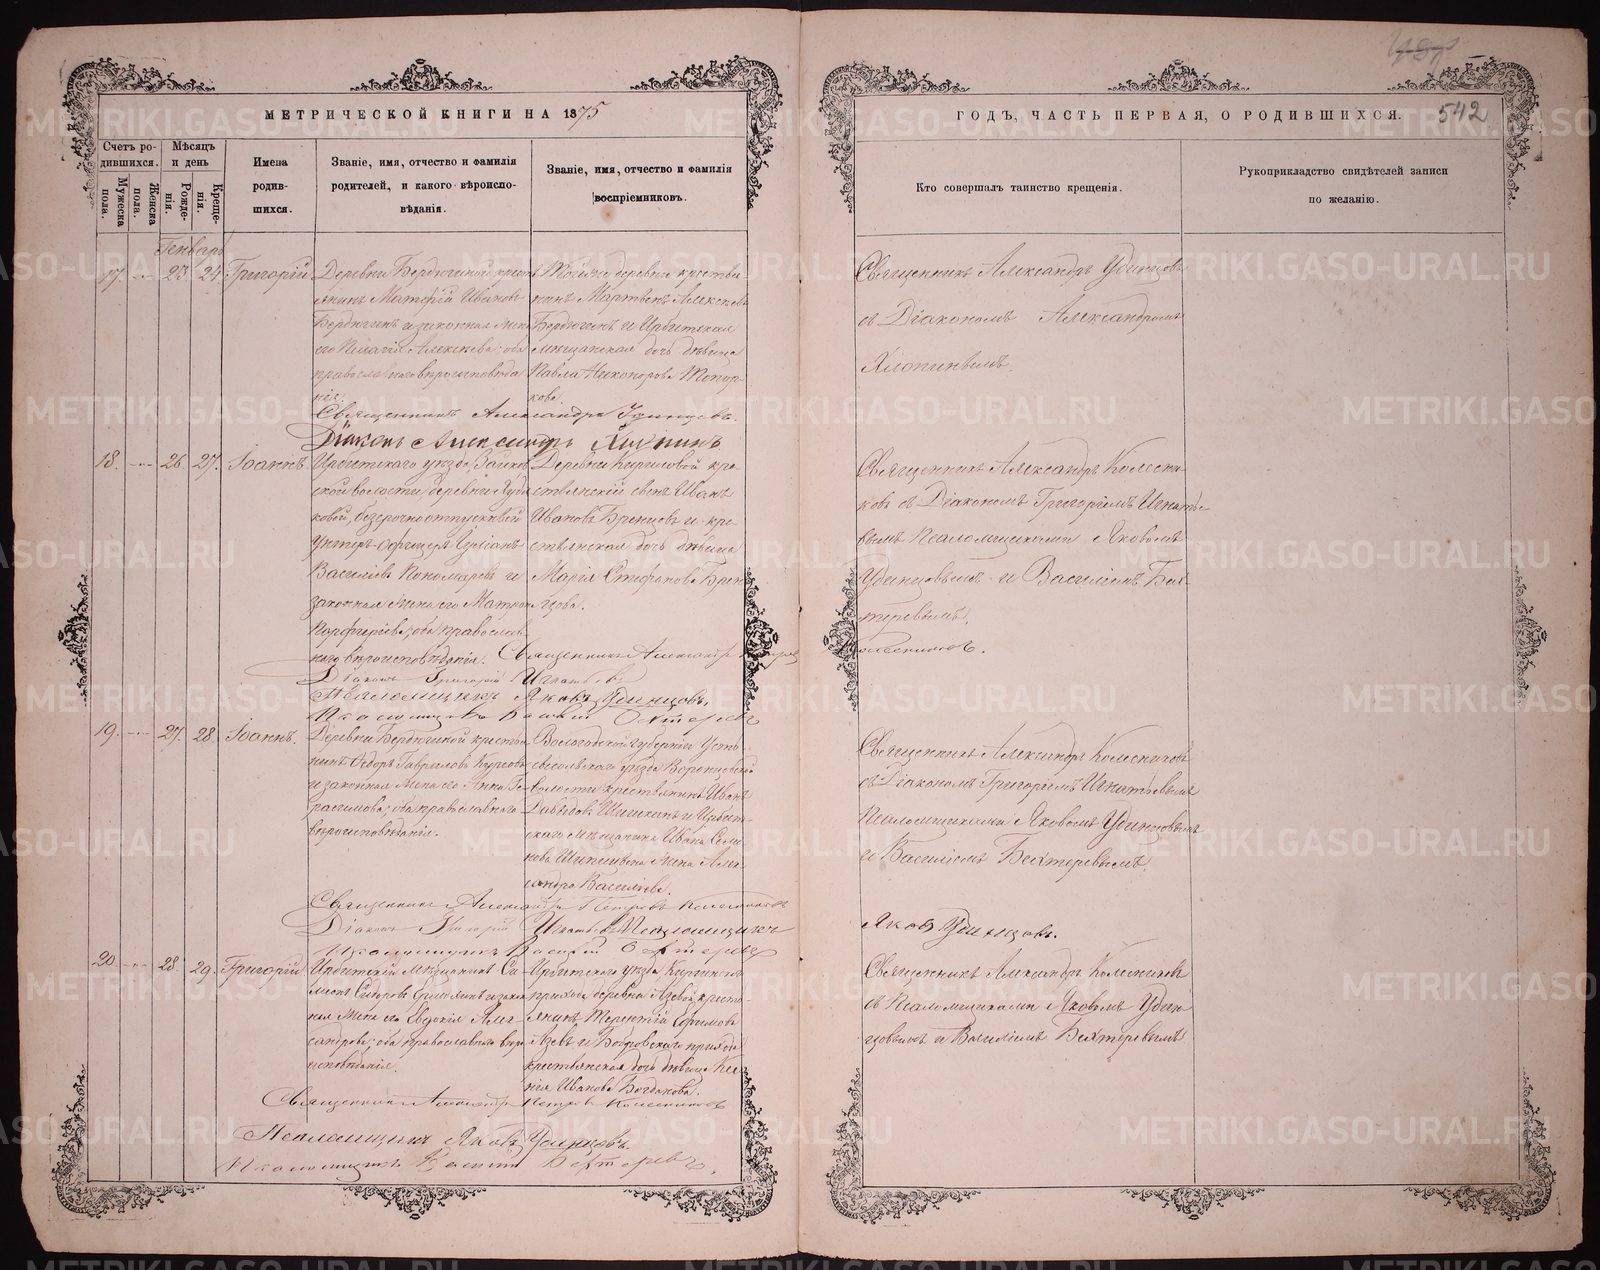 МЕТРИЧЕСКОЙ КНИГИ НА 1875
ГОДЪ, ЧАСТЬ ПЕРВАЯ, О РОДИВШИХСЯ.
542
Счетъ ро-
дившихся.
Мужеска
пола.
Женска
пола.
Мѣсяцъ
и день
Рожде-
нія.
Креще-
нія.
Имена
родив-
шихся.
Званіе, имя, отчество и фамилія
родителей, и какого вѣроиспо-
вѣданія.
Званіе, имя, отчество и фамилія
воспріемниковъ.
Кто совершалъ таинство крещенія.
Рукоприкладство свидѣтелей записи
по желанію.
Генварь
17.
23
24
Григорій
Деревни Бердюгиной крестья
янинъ Матфій Ивановъ
Бердюгинъ и законная жена
его Пелагія Алексѣева; оба
православнаго вѣроисповѣда
нія.
Тойже деревни крестья
нинъ Мартинъ Алексѣевъ
Бердюгинъ и Ирбитская
мѣщанская дочь дѣвица
Павла Никонорова Топор
кова.
Священникъ Александръ Удинцовъ
съ Діакономъ Александромъ
Хлопинымъ.
Священникъ Александръ Удинцовъ.
Діаконъ Александръ Хлопинъ
18.
26
27.
Іоаннъ
Ирбитскаго уѣзда, Зайков
ской волости, деревни
безсрочноотпускной
Унтеръ-Офицеръ
Василіевъ Пономаревъ и
законная жена его Матрона
Порфиріева; оба православ
наго вѣроисповѣданія.
Деревни Кириловой кре
стьянскій сынъ Иванъ
Ивановъ Бренцовъ и кре-
стьянская дочь дѣвица
Марія Стефанова Брен
цова.
Священникъ Александръ Колесни
ковъ съ Діакономъ Григоріемъ Игнатье
вымъ Псаломщиками Яковомъ
Удинцовымъ и Василіемъ Бех
теревымъ.
Священникъ Александръ Петровъ
Колесниковъ.
Діаконъ Григорій Игнатьевъ
Псаломщикъ Яковъ Удинцовъ.
Псаломщикъ Василій Бехтеревъ
19.
27.
28.
Іоаннъ.
Деревни Бердюгиной крестья
нинъ Ѳедоръ Гавриловъ
и законная жена его Анна Ге
расимова; оба православнаго
вѣроисповѣданія.
Вологодской губерніи Усть
сысольскаго уѣзда Воронцовской
волости крестьянинъ Иванъ
Давыдовъ Шишкинъ и Ирбит
скаго мѣщанина Ивана Семе
нова жена Алек
сандра Василіева.
Священникъ Александръ Колесниковъ
съ Діакономъ Григоріемъ Игнатьевымъ
Псаломщиками Яковомъ Удинцовымъ
и Василіемъ Бехтеревымъ.
Священникъ Александръ Петровъ Колесниковъ
Діаконъ Григорій Игнатьевъ Псаломщикъ
Яковъ Удинцовъ.
Псаломщикъ Василій Бехтеревъ
20
28.
29.
Григорій
Ирбитскій мѣщанинъ Си
меонъ Сидоровъ и закон
ная жена его Евдокія Алек
сандрова; оба православнаго вѣро
исповѣданія.
Ирбитскаго уѣзда Киргинскаго
прихода деревни Азевой кресть
янинъ Терентій Ефимовъ
Азевъ и Бобровскаго прихода
крестьянская дочь дѣвица Ксе
нія Иванова Богданова.
Священникъ Александръ Колесниковъ
съ Псаломщиками Яковомъ Удин
цовымъ и Василіемъ Бехтеревымъ
Священникъ Александръ Петровъ Колесниковъ
Псаломщикъ Яковъ Удинцовъ
Псаломщикъ Василій Бехтеревъ.
METRIKI.GASO-URAL.RU